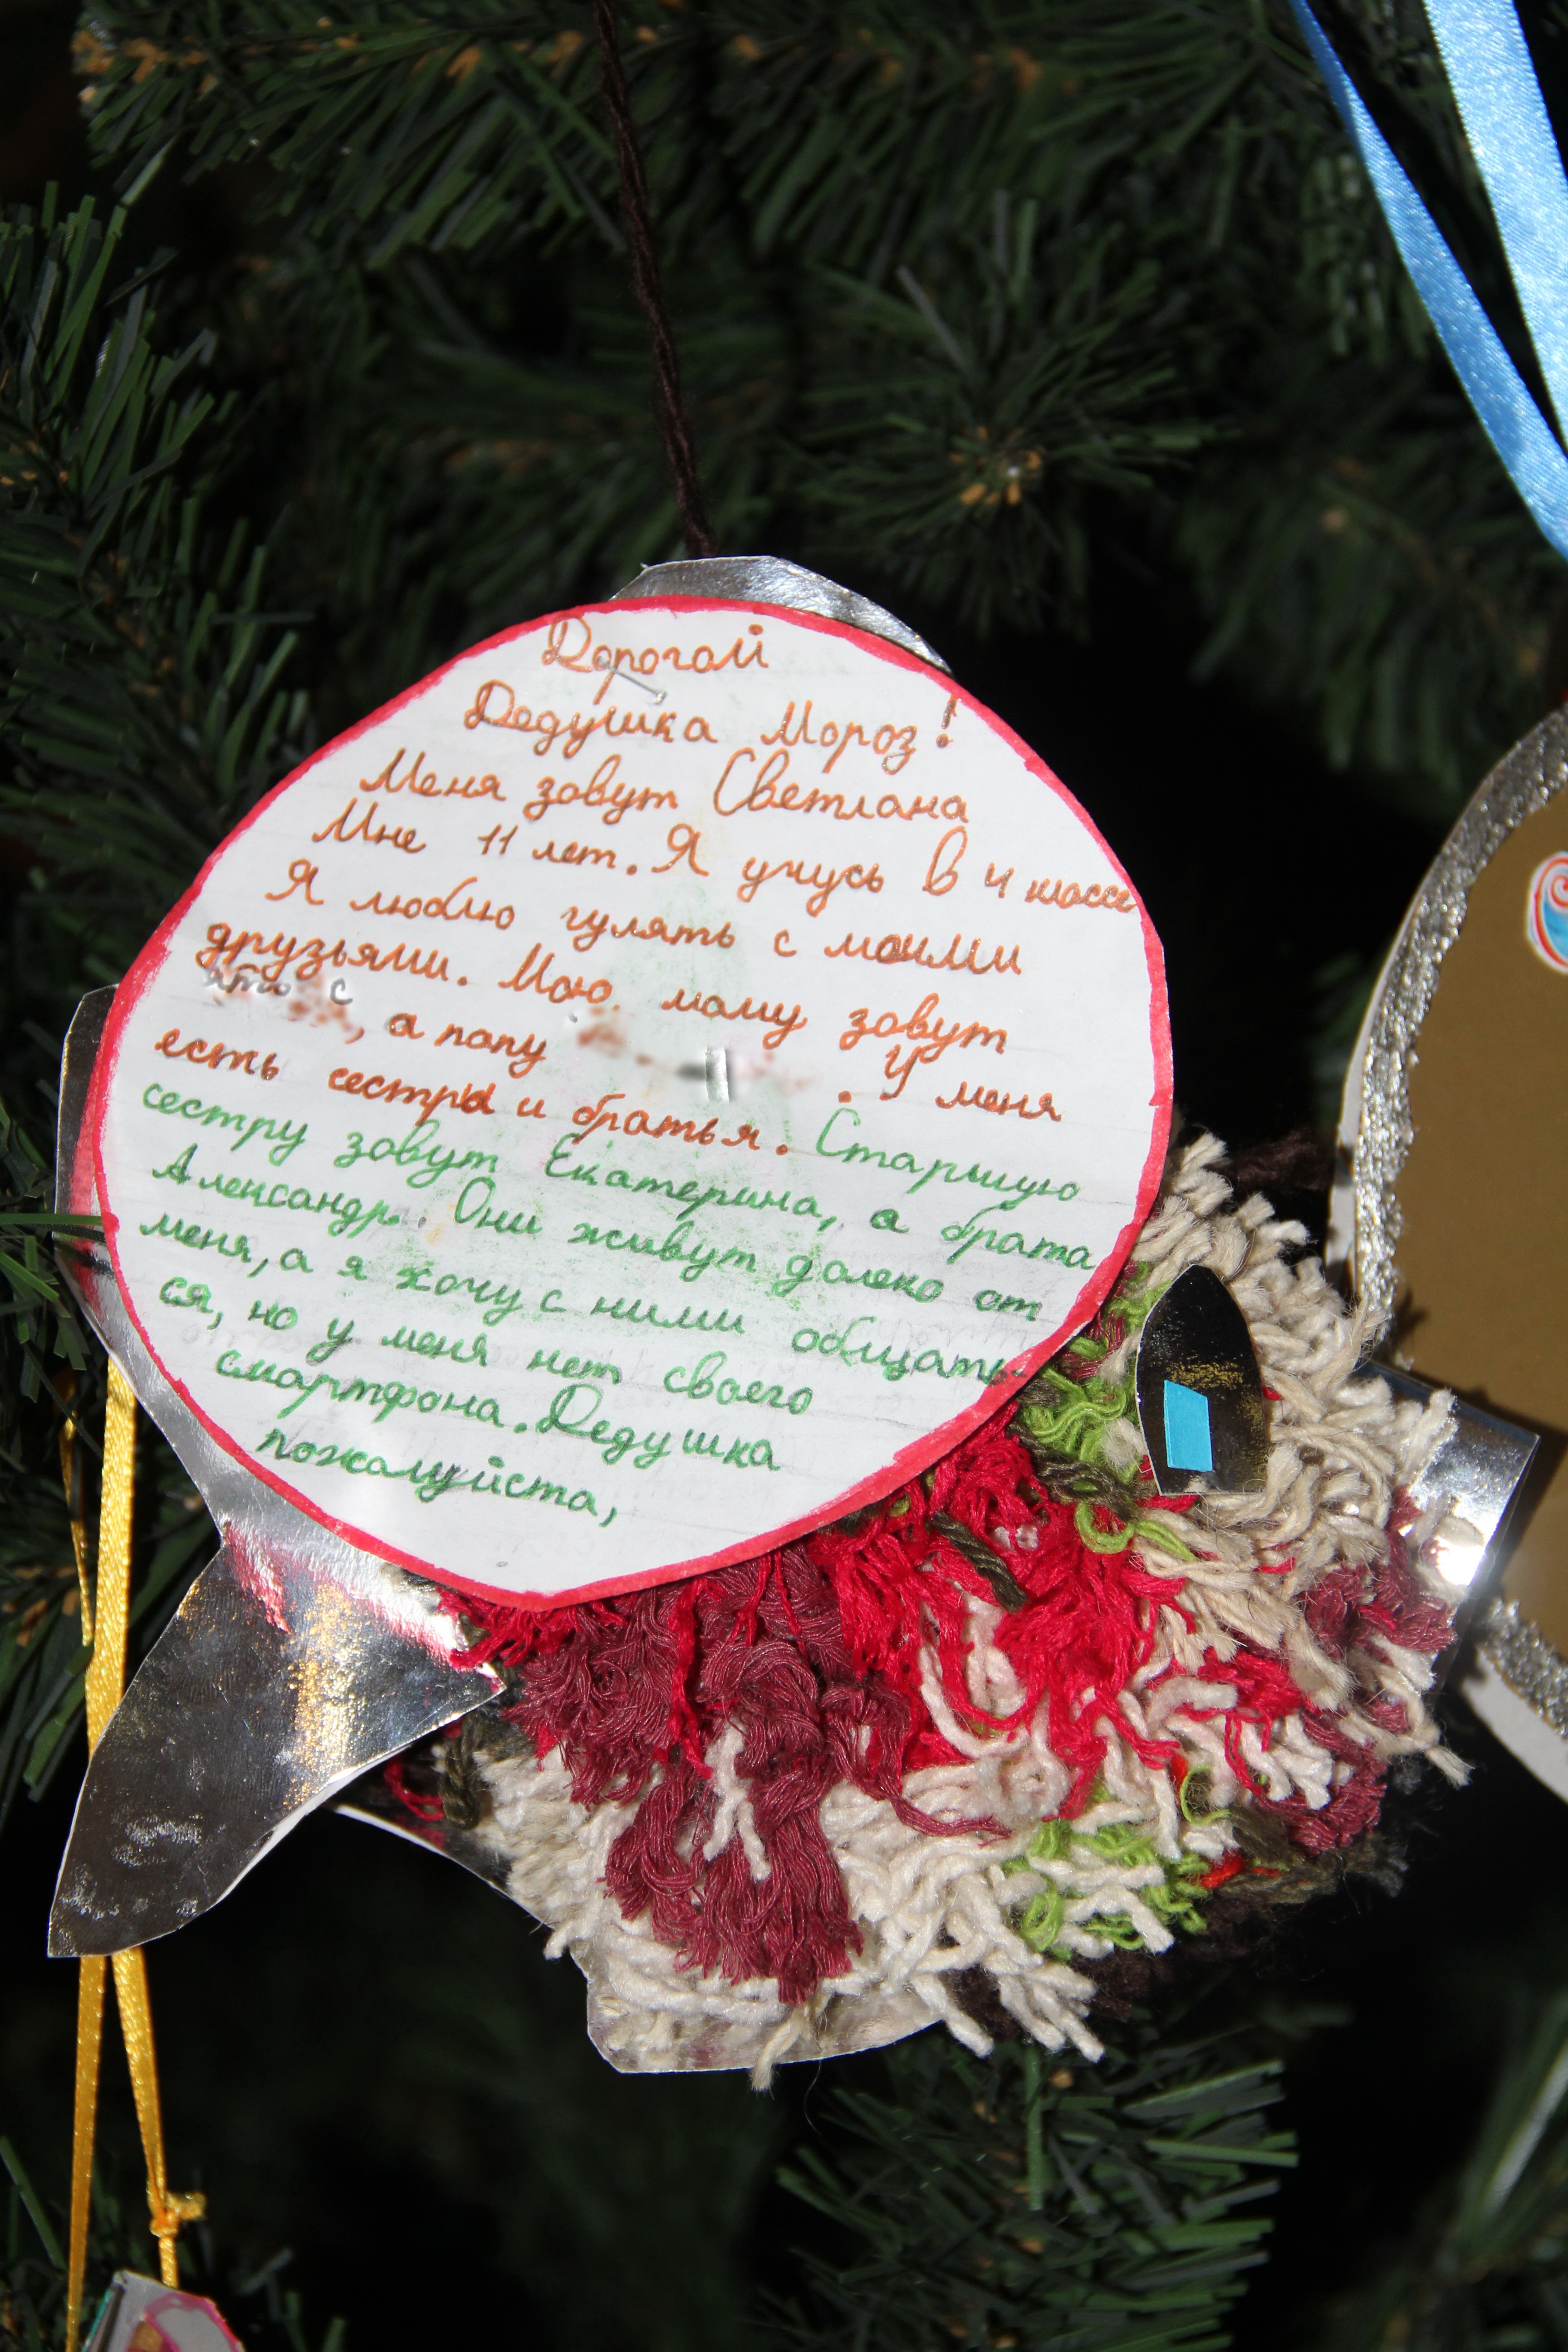 Дорогой
Дедушка Мороз!
Меня зовут Светлана
Мне 11 лет. Я учусь в 4 классе
Я люблю гулять с моими
друзьями. Мою маму зовут
, а папу . У меня
есть сестры и братья. Старшую
сестру зовут Екатерина, а брата
Александр. Они живут далеко от
меня, а я хочу с ними общать
ся, но у меня нет своего
смартфона. Дедушка
пожалуйста,